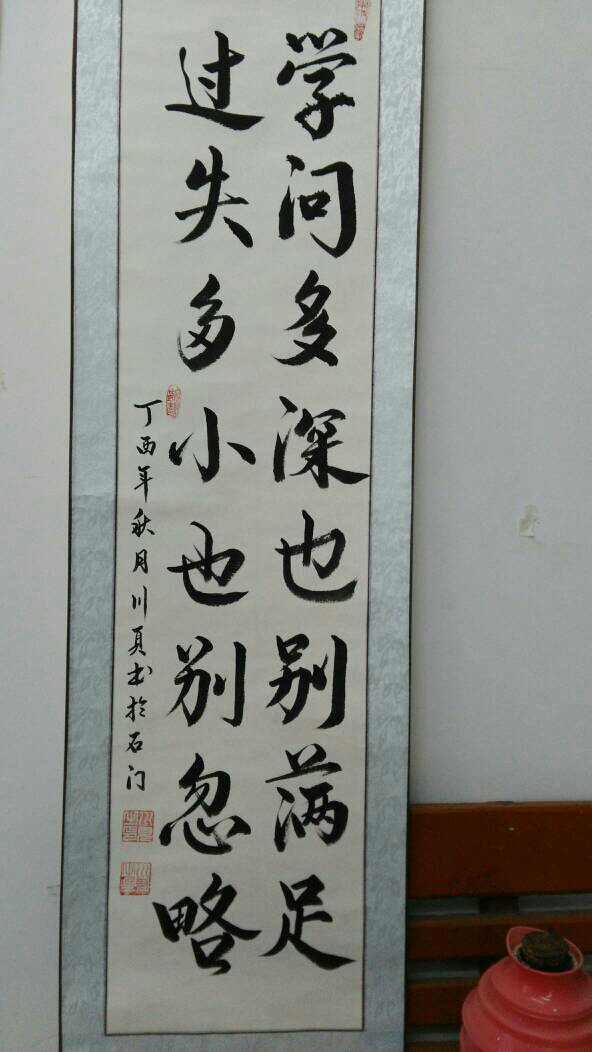 学问多深也别满足
过失多小也别忽略
丁酉年秋月川页书於石门